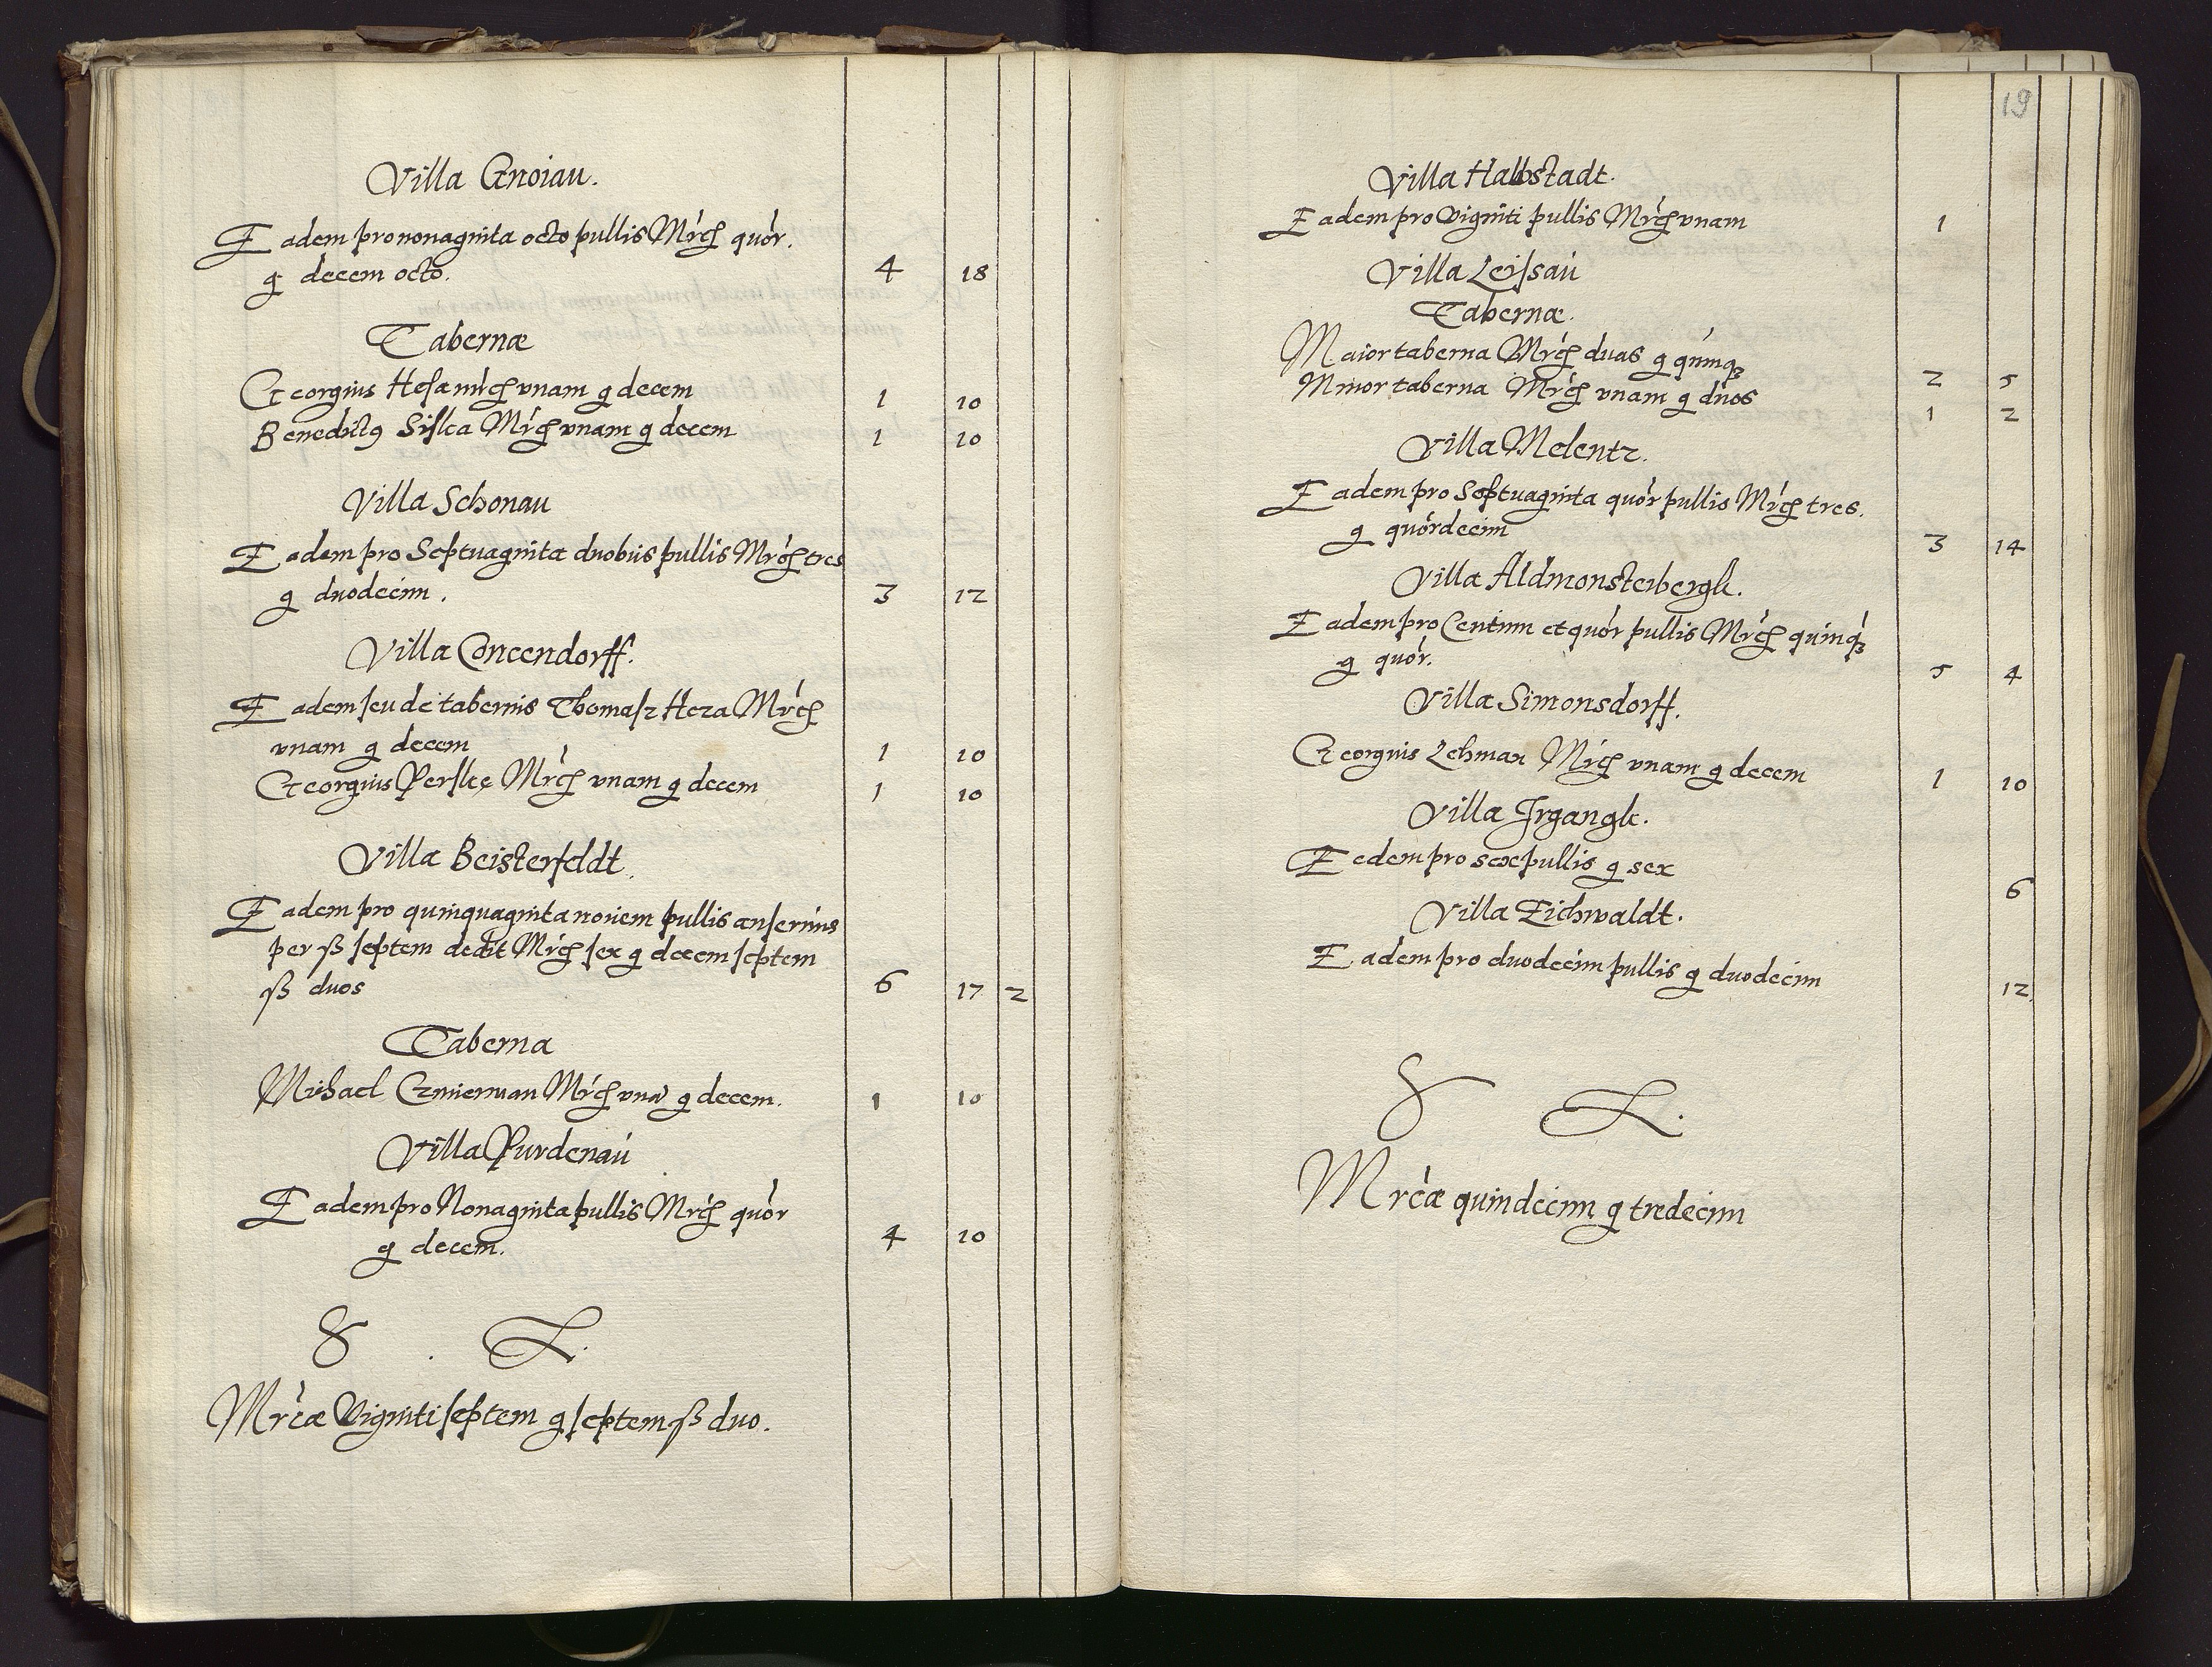 Villa Gnoiau.
Eadem pro nonaginta octo pullis Mrch quòr.
g decem octo. 4 18
Tabernæ
Georgius Hesa mrch vnam g decem 1 10
Benedict9 Siska Mrch vnam g decem 1 10
Villa Schonau
Eadem pro Septuaginta duobus pullis Mrch tres
g duodecim. 3 12
Villa Concendorff.
Eadem seu de tabernis Thomasz Heza Mrch
vnam g decem 1 10
Georgius Perske Mrch vnam g decem 1 10
Villa Beisterfeldt.
Eadem pro quinquaginta nouem pullis anserinis
per ß septem dedit Mrch sex g decem septem
ß duos 6 17 2
Taberna
Michael Mrch vnã g decem. 1 10
Villa Purdenaú
Eadem pro Nonaginta pullis Mrch quòr
g decem. 4 10
S L.
Mrcæ Viginti septem g septem ß duo.
19
Villa Halbstadt.
Eadem pro viginti pullis Mrch vnam 1
Villa Leissaú
Tabernæ.
Maior taberna Mrch duas g quinq3 2 5
Minor taberna Mrch vnam g duos 1 2
Villa Melentz.
Eadem pro Septuaginta quòr pullis Mrch tres.
g quòrdecim 3 14
Villa Aldmonsterbergk.
Eadem pro Centum et quòr pullis Mrch quinq3
g quòr. 5 4
Villa Simonsdorff.
Georgius Lehman Mrch vnam g decem 1 10
Villa Irgangk.
Eedem pro sex pullis g sex 6
Villa Eichwaldt.
Eadem pro duodecim pullis g duodecim 12
S L.
Mrcæ quindecim g tredecim